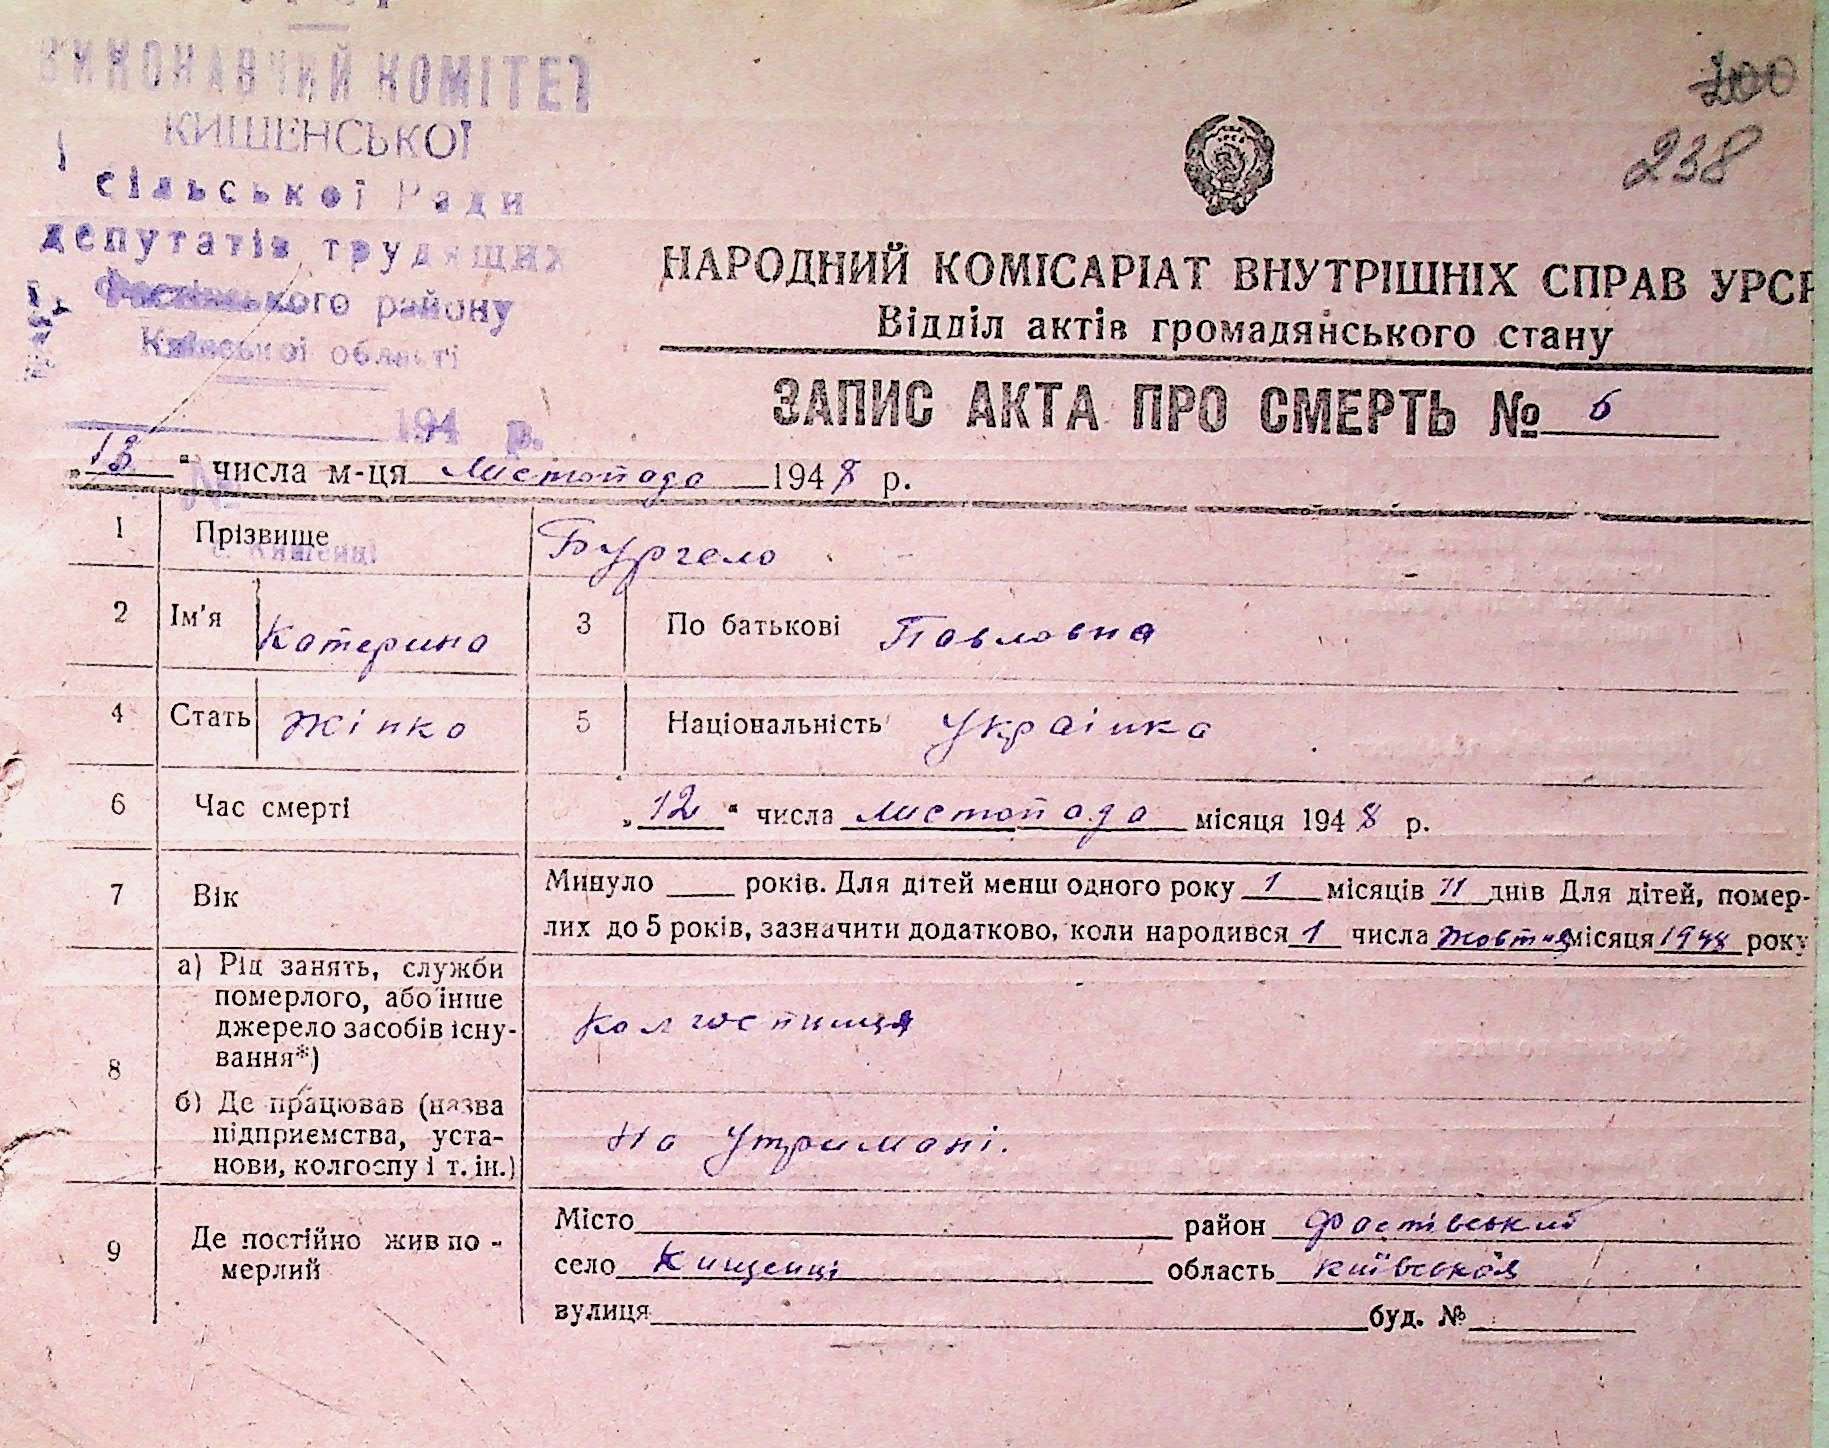 ВИКОНАВЧИЙ КОМІТЕТ
КИШЕНСЬКОЇ
сільської Ради
депутатів трудящих
Фастівського району
Київської області
194 р.
с. Кишенці
200
238
НАРОДНИЙ КОМІСАРІАТ ВНУТРІШНІХ СПРАВ УРСР
Відділ актів громадянського стану
ЗАПИС АКТА ПРО СМЕРТЬ № 6
„13“ числа м-ця Листопада 1948 р.
1 Прізвище Бургело
2 Ім'я Катерина 3 По батькові Павловна
4 Стать Жінка 5 Національність Українка
6 Час смерті „12“ числа листопада місяця 1948 р.
7 Вік Минуло ____ років. Для дітей менш одного року 1 місяців 11 днів Для дітей, помер-
лих до 5 років, зазначити додатково, коли народився 1 числа жовтня місяця 1948 року
8 а) Рід занять, служби
померлого, або інше
джерело засобів існу-
вання*)
Колгостниця
б) Де працював (назва
підприємства, уста-
нови, колгоспу і т. ін.)
На утримані.
9 Де постійно жив по-
мерлий
Місто район Фастівський
село Кищенці область київськоя
вулиця буд. №